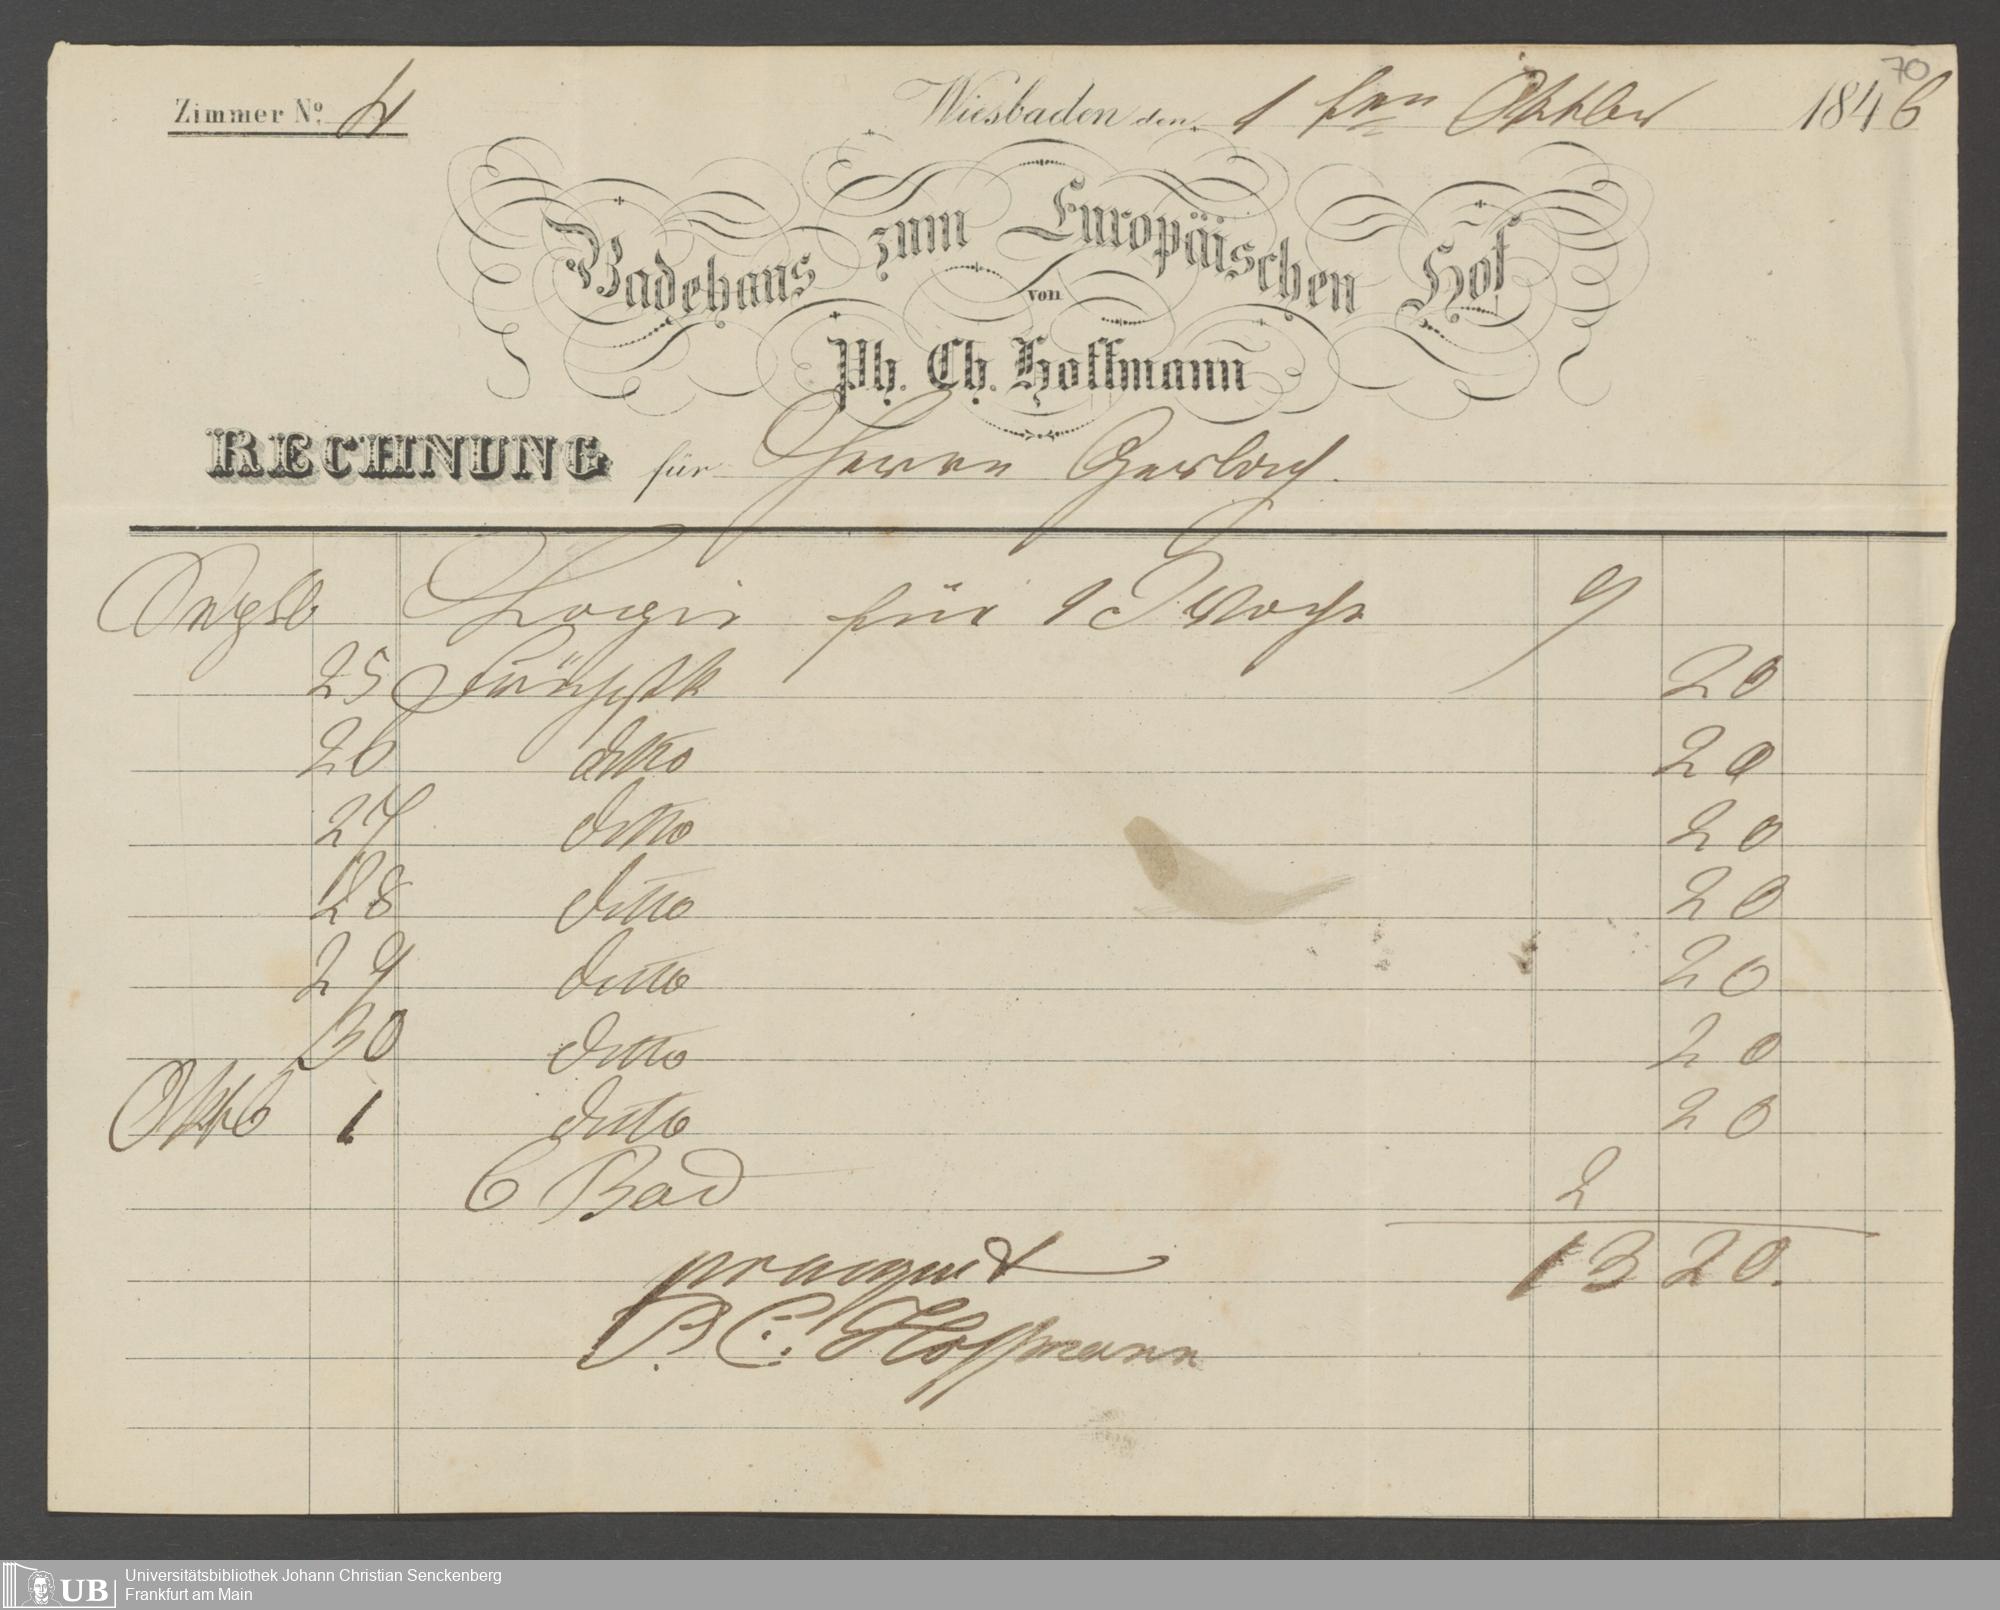 70
Zimmer No. 4 Wiesbaden den 1 ten Oktober 1846
Badehaus zum Europäischen Hof
von
Ph. Ch. Hoffmann
RECHNUNG für Herrn Gerlach.
Septb Logis für 1 Woche 9
25 Frühstk 20
26 ditto 20
27 ditto 20
28 ditto 20
29 ditto 20
30 ditto 20
Oktb 1 ditto 20
6 Bad 2
13 20.
P. C. Hoffmann
UB Universitätsbibliothek Johann Christian Senckenberg
Frankfurt am Main